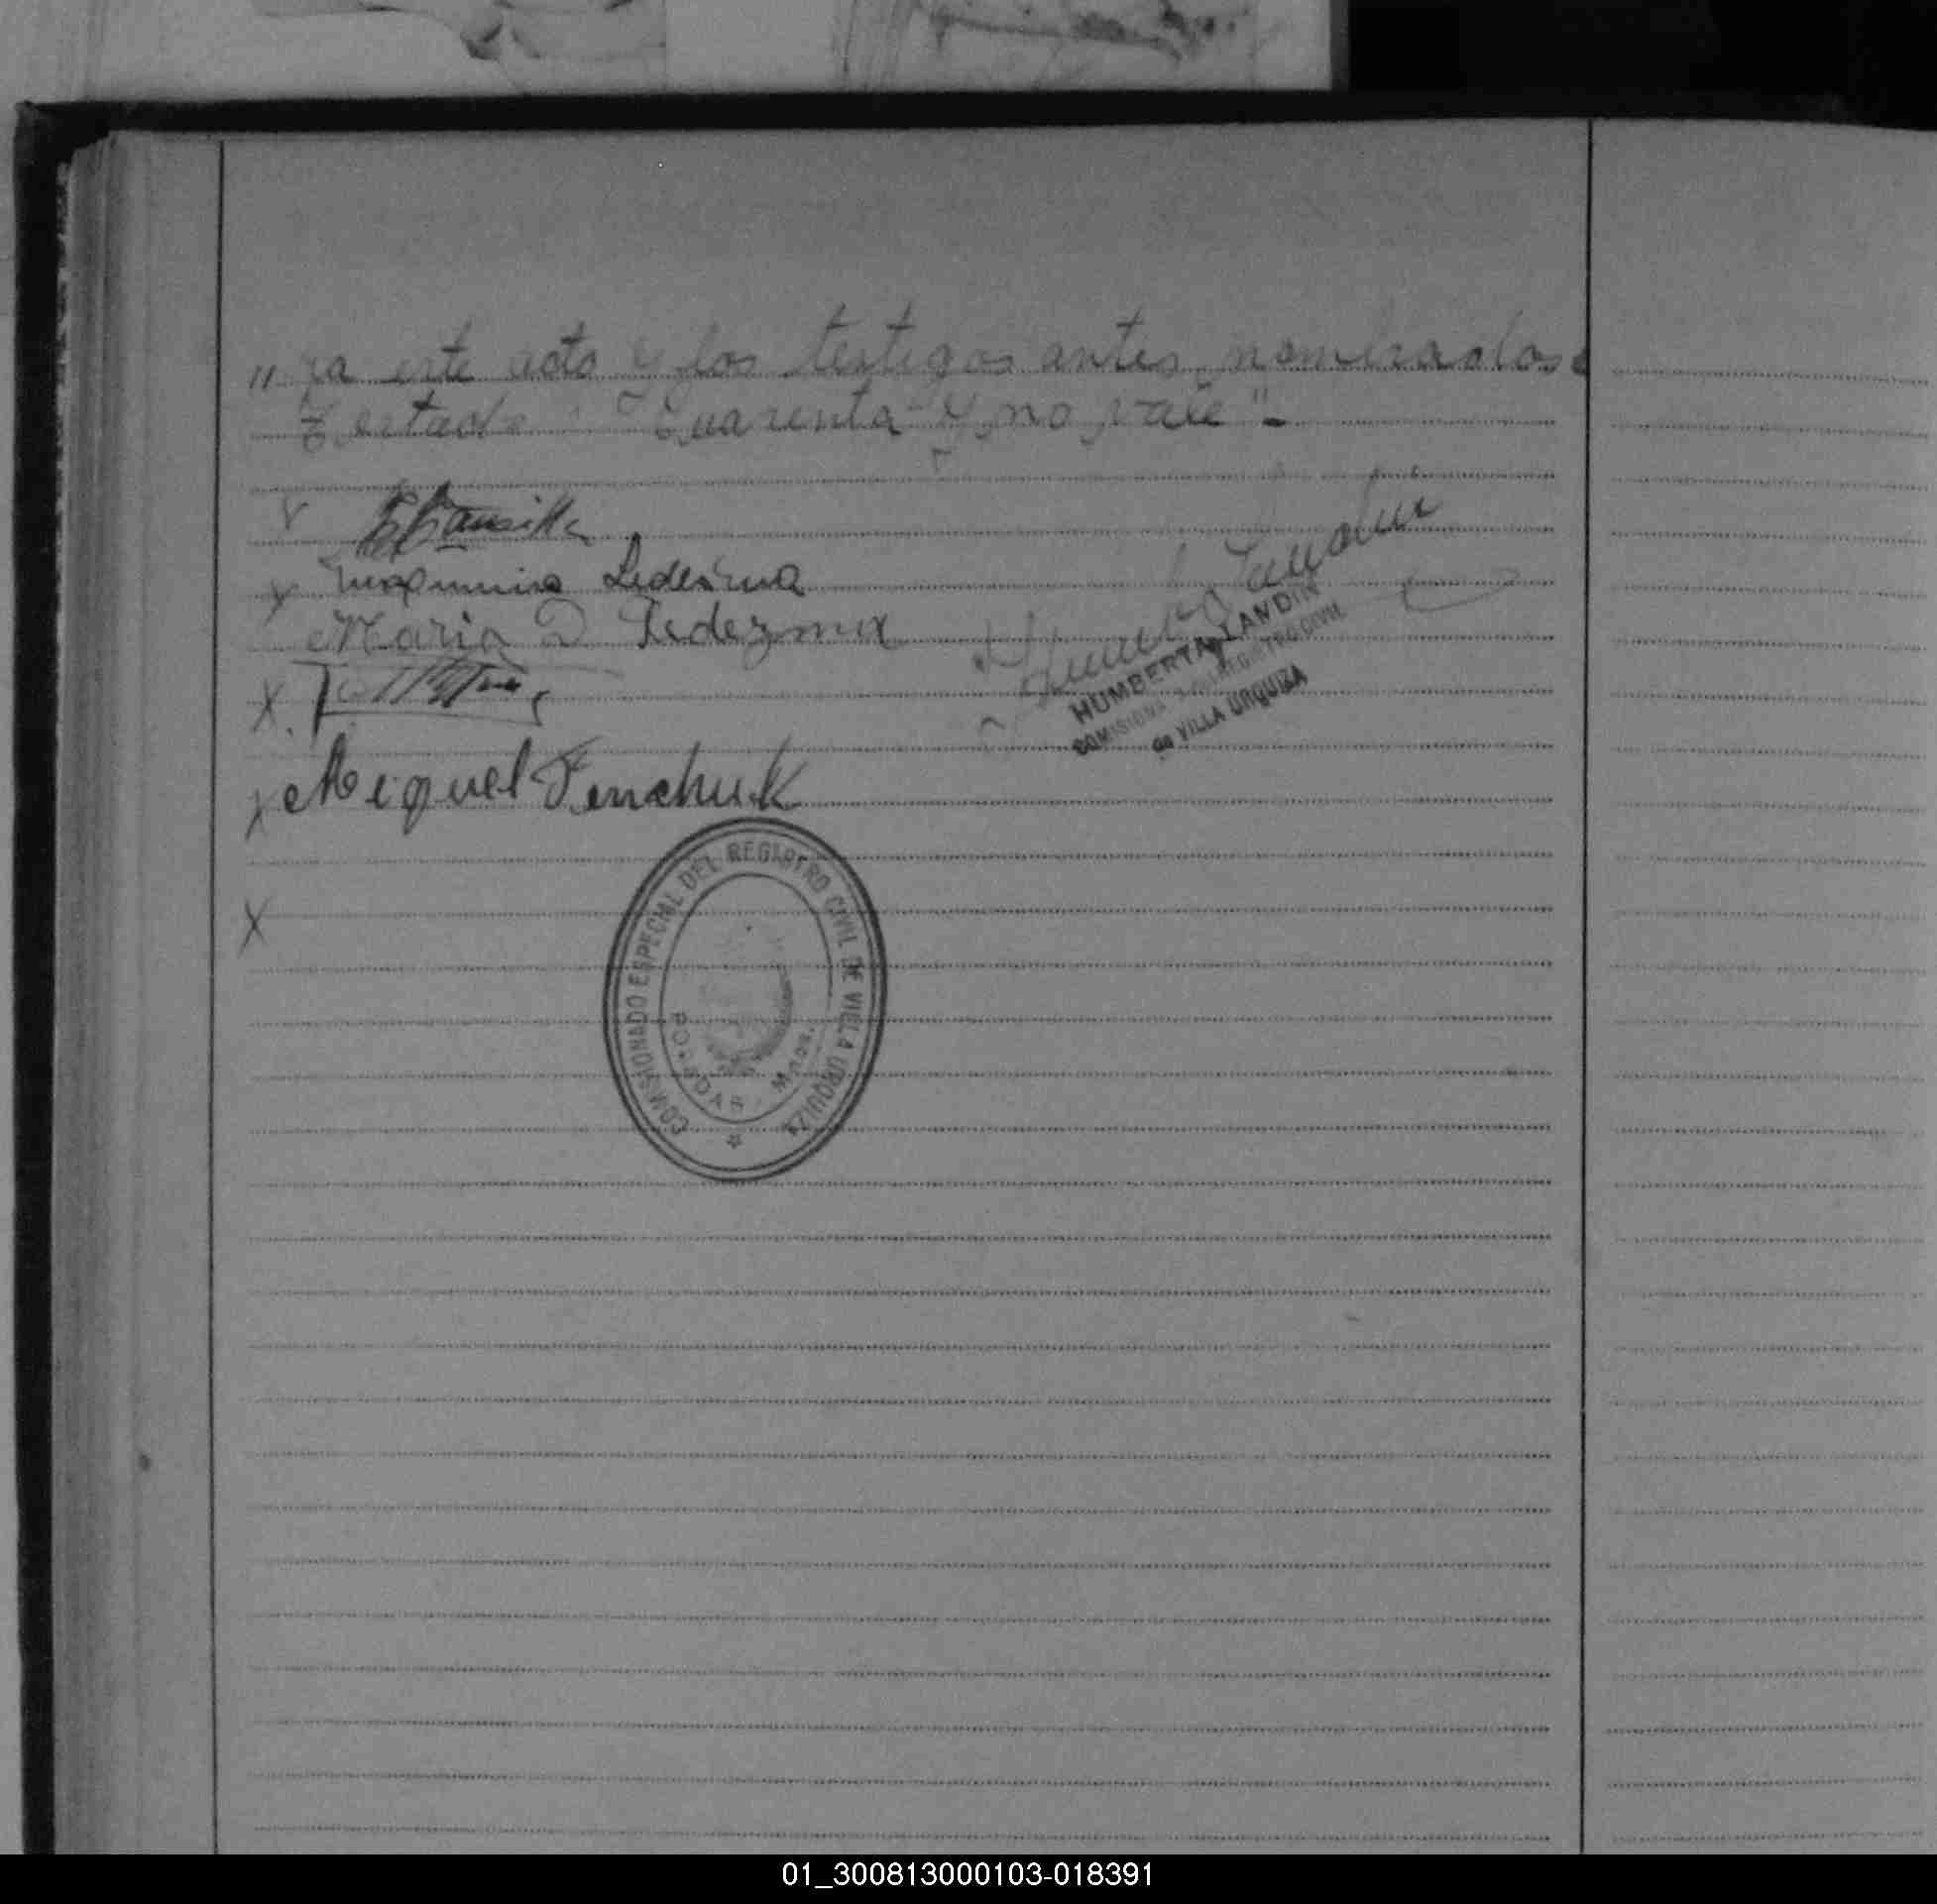 "ra este acto y los testigos antes nombrados
Testado: "Cuarenta" y no vale"-
Mansilla
Ledesma
Maria D Ledezma
Miguel Fenchuk
Humberta Landin
HUMBERTA LANDIN
COMISIONADA REGISTRO CIVIL
de VILLA URQUIZA
COMISIONADO ESPECIAL DEL REGISTRO CIVIL DE VILLA URQUIZA
POSADAS - Mnes.
01_300813000103-018391